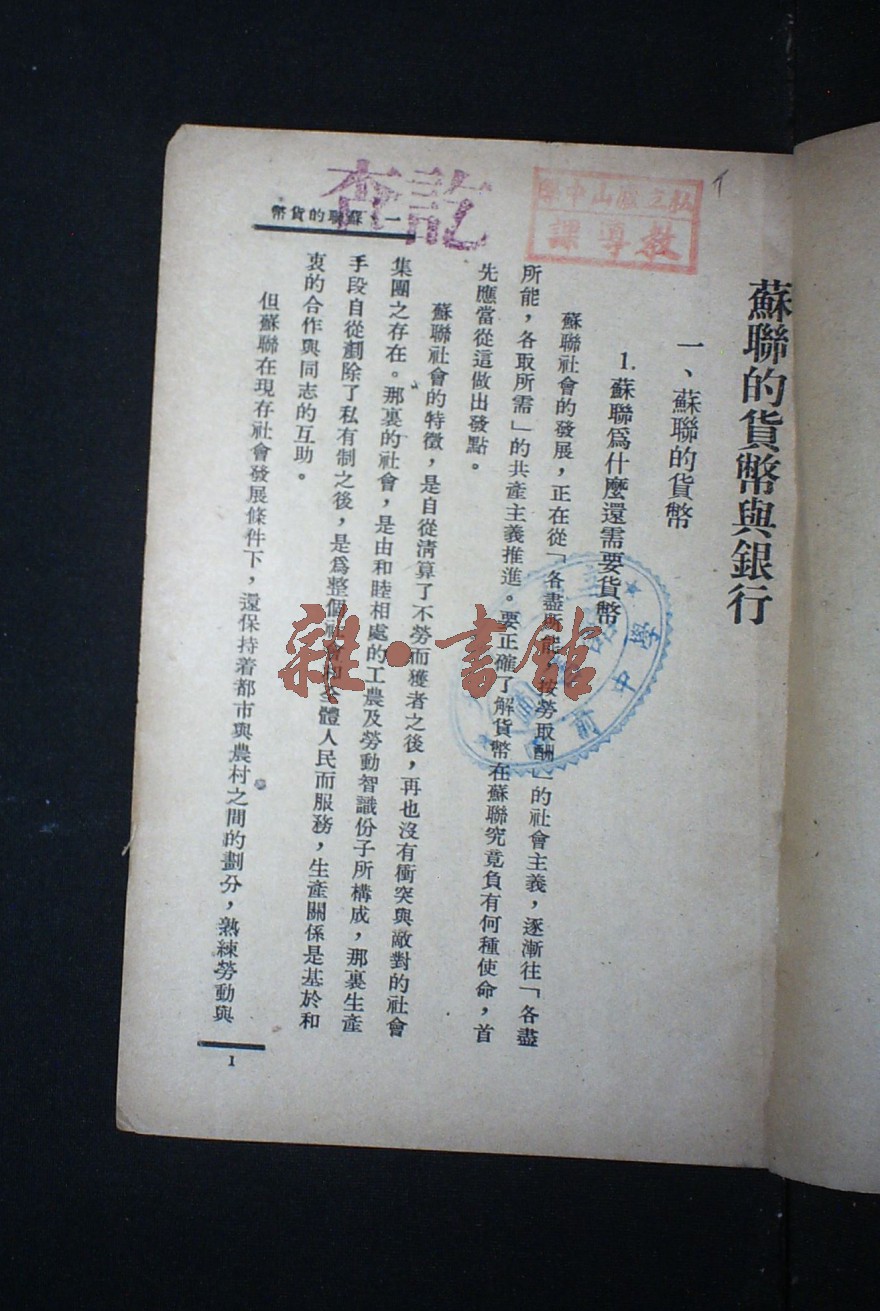 蘇聯的貨幣與銀行
一、蘇聯的貨幣
1. 蘇聯爲什麼還需要貨幣
蘇聯社會的發展，正在從「各盡所能，按勞取酬」的社會主義，逐漸往「各盡
所能，各取所需」的共產主義推進。要正確了解貨幣在蘇聯究竟負有何種使命，首
先應當從這做出發點。
蘇聯社會的特徵，是自從清算了不勞而獲者之後，再也沒有衝突與敵對的社會
集團之存在。那裏的社會，是由和睦相處的工農及勞動智識份子所構成，那裏生產
手段自從剷除了私有制之後，是爲整個社會和全體人民而服務，生產關係是基於和
衷的合作與同志的互助。
但蘇聯在現存社會發展條件下，還保持着都市與農村之間的劃分，熟練勞動與
一 蘇聯的貨幣
1
查訖
私立山中學
教導課
中學
雜·書館